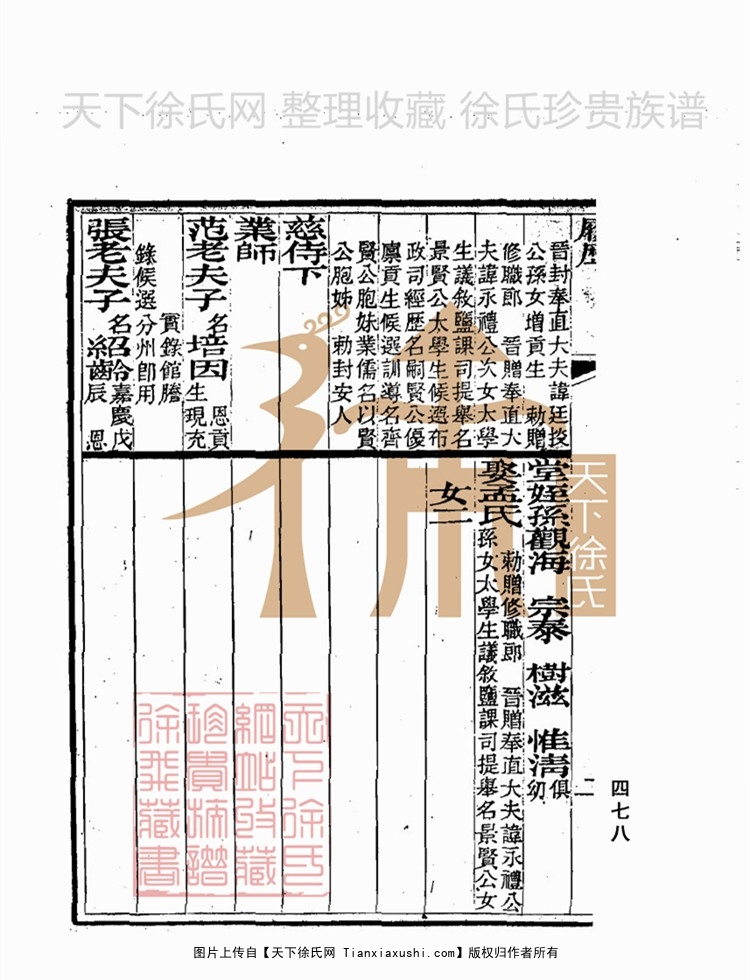 天下徐氏网 整理收藏 徐氏珍贵族谱
履歷
晉封奉直大夫諱廷授
公孫女增貢生 勅贈
修職郎 晉贈奉直大
夫諱永禮公次女太學
生議敘鹽課司提舉名
景賢公太學生候選布
政司經歷名嗣賢公優
廩貢生候選訓導名齊
賢公胞妹業儒名以賢
公胞姊 勅封安人
慈侍下
業師
范老夫子 名培因 恩貢
生現充
實錄館謄
錄候選分州即用
張老夫子 名紹齡 嘉慶戊
辰 恩
堂姪孫觀海 宗泰 樹滋 惟清 俱
幼
娶孟氏 勅贈修職郎 晉贈奉直大夫諱永禮公
孫女太學生議敘鹽課司提舉名景賢公女
女二
二
四七八
天下徐氏
天下徐氏
網站收藏
珍貴族譜
徐飛藏書
图片上传自【天下徐氏网 Tianxiaxushi.com】版权归作者所有